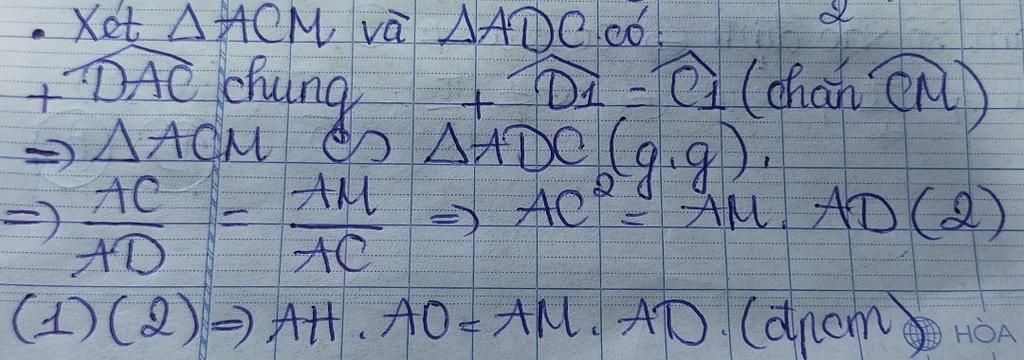 2
. Xét ΔACM và ΔADC có:
+ \widehat{DAC} chung + \widehat{D1} = \widehat{C1} (chắn \overgroup{CM})
=> ΔACM ∽ ΔADC (g.g).
=> AC/AD = AM/AC => AC² = AM. AD (2)
(1)(2) => AH. AO = AM. AD. (đpcm) HÒA